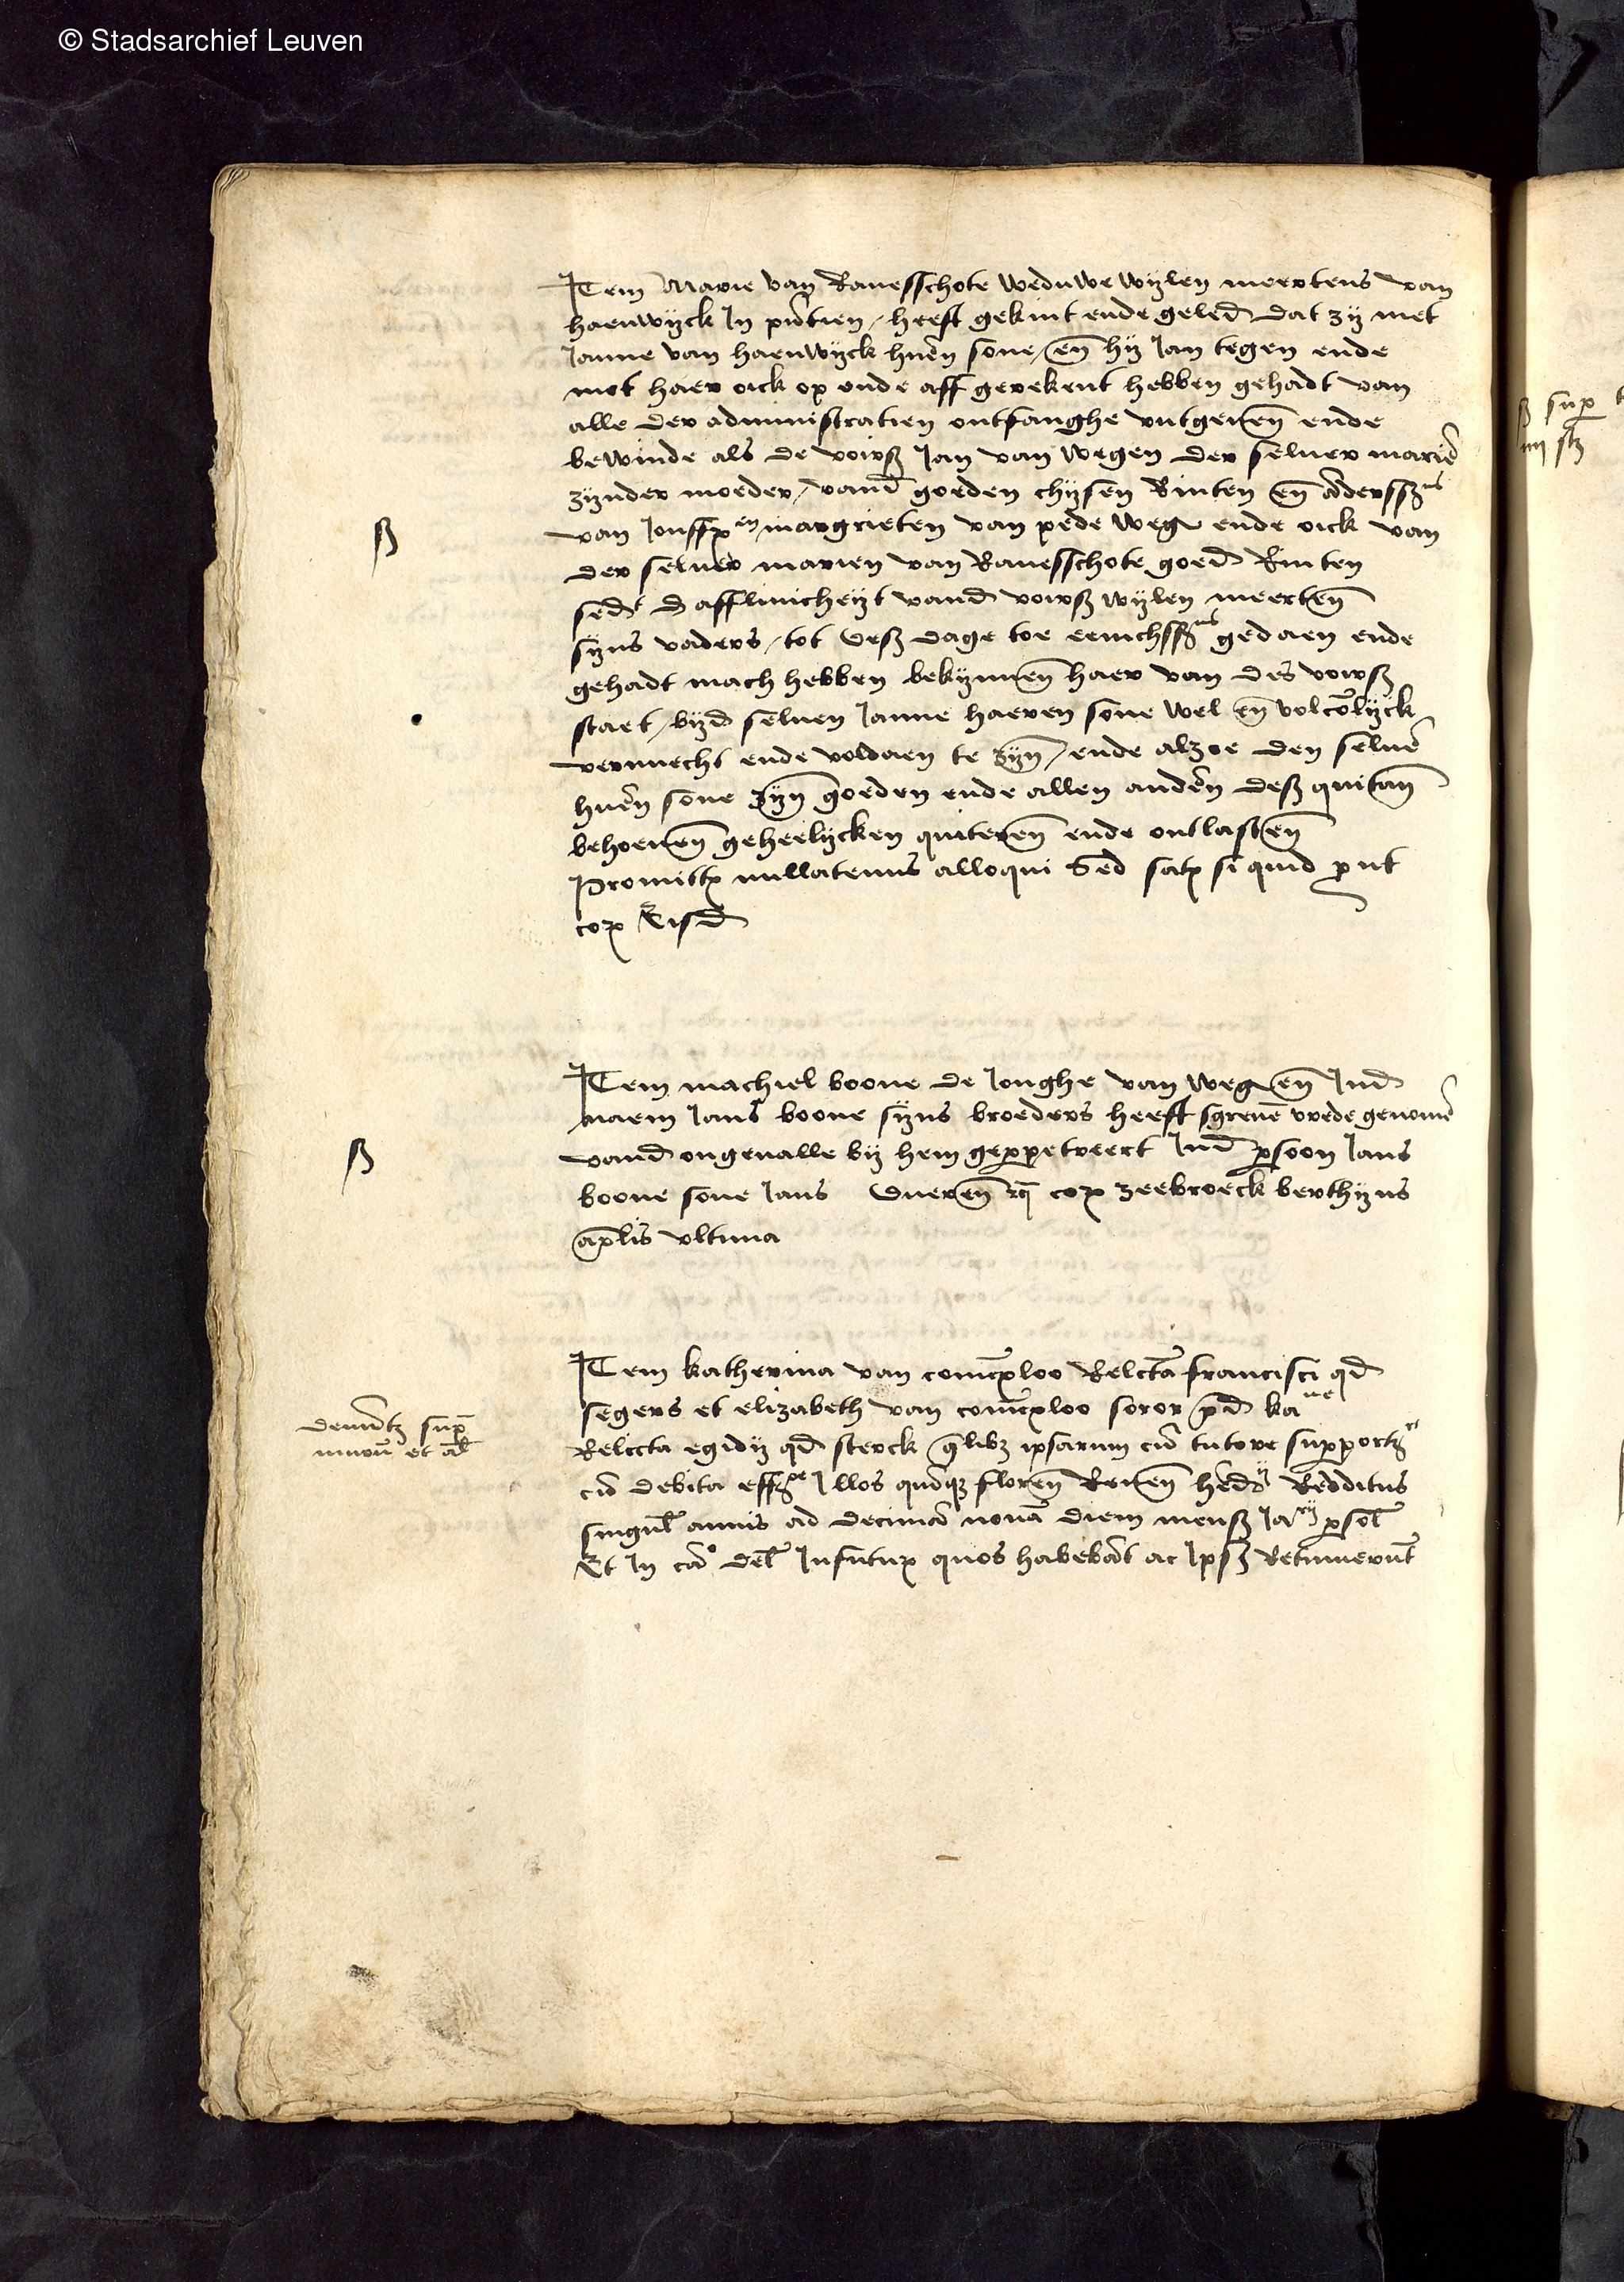 © Stadsarchief Leuven
Item Marie van Ranesschote weduwe wijlen meertens van
haenwijck Jn pntien / heeft gekint ende geled dat zij met
Janne van haenwijck hueren sone / en hij Jan tegen ende
met haer oick op ende aff gerekent hebben gehadt van
alle der administratien ontfanghe vutgeuen ende
bewinde als de voirs Jan van wegen der seluer marien
zijnder moeder / vand goeden chijsen Rinten en anderssins
van Jouffren margrieten van pede weg ende oick van
der seluer marien van Ranesschote goed Rinten
sedt d afflinicheyt vand voirs wijlen meerten
sijns vaders / tot des dage toe eenichssins gedaen ende
gehadt mach hebben bekynnen haer van des voirs
staet / bijd seluen Janne haeren sone wel en volcomelijck
vernuecht ende voldaen te zijn / ende alzoe den seluen
hueren sone zijn goeden ende allen anderen des quitan
behoeuen geheelijcken quiteren ende ontlasten
Promitt nullatenus alloqui Sed sat si quid put
cor Eisd
ß
Item machiel boone de Jonghe van weg en Jnd
naem Jans boone sijns broeders heeft sgreuen vrede genomen
vand ongeualle bij hem geperpetreert Jnd persoon Jans
boone sone Jans Dueren cor zeebroeck berthijns
aprilis vltima
ß
Item katherina van comexloo Relcta francisci qd
segers et elizabeth van comexloo soror pred ka ne
Relicta egidij qd sterck qlibz ipsarum cum tutore support
cum debita eff Jllos quinqz floren Renen hered Redditus
singul annis ad decima nona diem mens Ja rij persol
Et Jn ca del Jnfutur quos habebat ac Jpss Retinuerunt
et al
sup